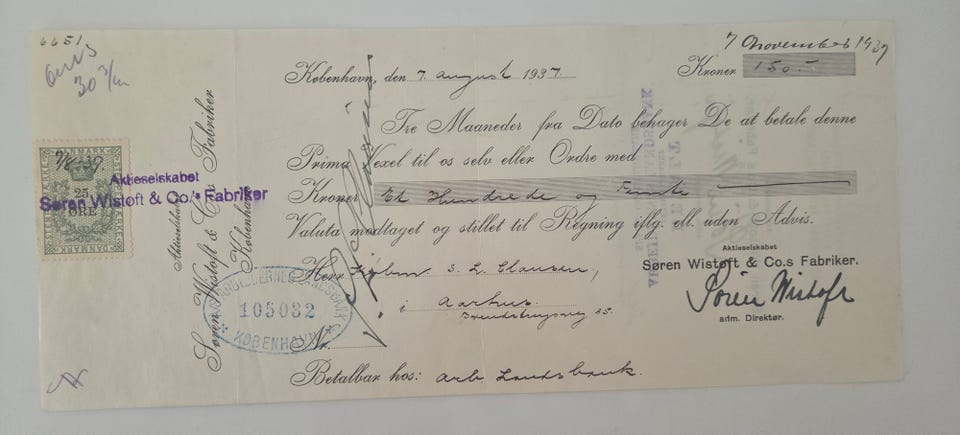 6651
7 November 1937
30
København, den 7. august 1937.
Kroner 150.-
Tre Maaneder fra Dato behager De at betale denne
Prima Vexel til os selv eller Ordre med
Kroner Et Hundrede og Femti
Valuta modtaget og stillet til Regning iflg. ell. uden Advis.
Herr Købm. S. L. Clausen,
i Aarhus.
Nr.
Betalbar hos: Arb. Landsbank.
Aktieselskabet
Søren Wistoft & Co.s Fabriker.
Søren Wistoft
adm. Direktør.
Aktieselskabet
Søren Wistoft & Co.s Fabriker
København
DANMARK
25
ØRE
DANMARK
Aktieselskabet
Søren Wistoft & Co.'s Fabriker
105032
KØBENHAVN